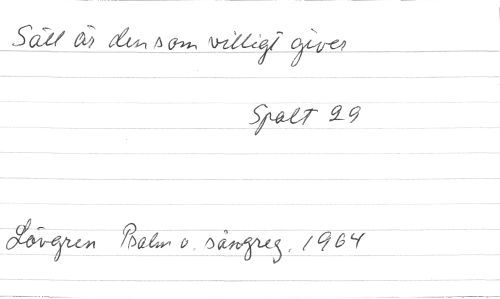 Säll är den som villigt giver
Spalt 29
Lövgren Psalm o. sångreg. 1964